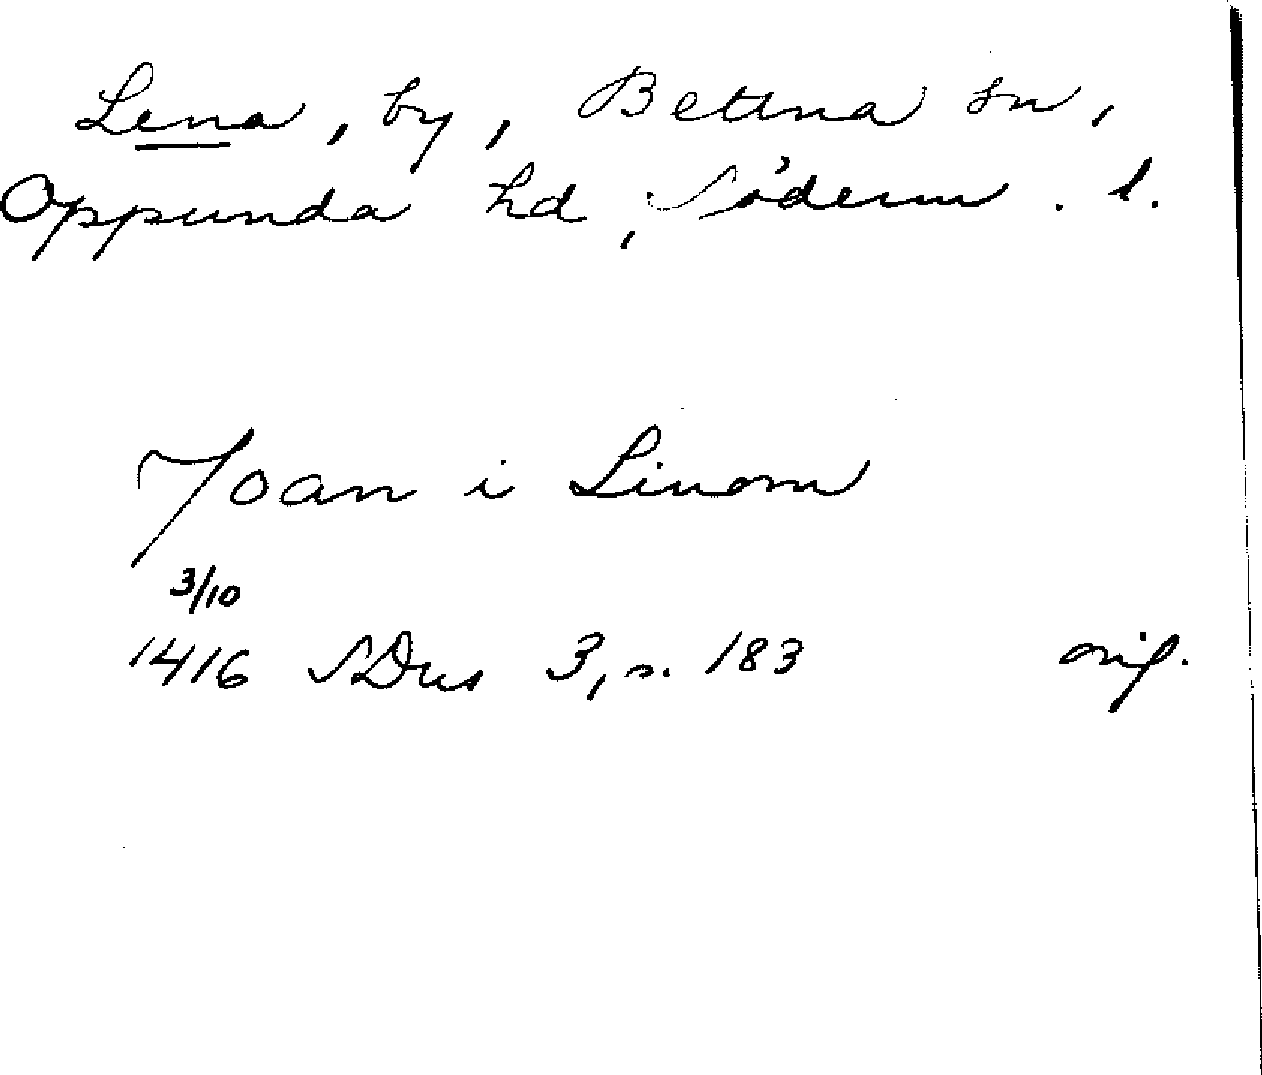 Lena, by, Bettna sn,
Oppunda hd, Söderm. l.
Joan i Linom
3/10
1416 SDns 3, s. 183 orig.